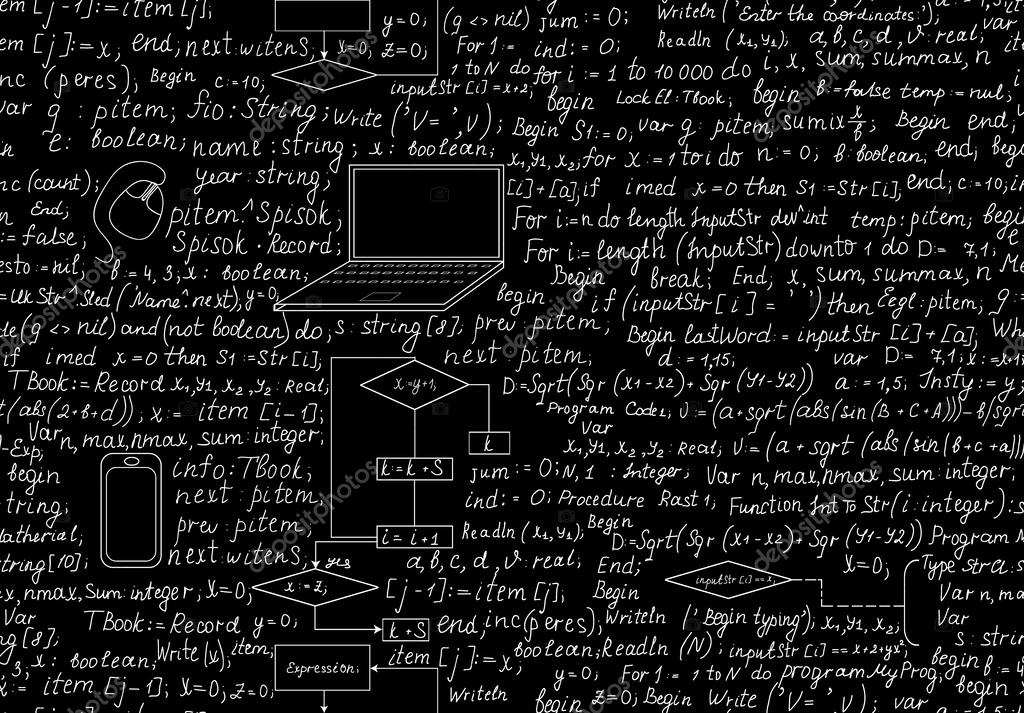 em [j-1]:=item [j];
y=0;
(g <> nil) jum := 0;
Writeln ('Enter the coordinates:');
var
em [j]:=x, end; next witenS,
x=0,
z=0;
For 1:=
ind: = 0;
Readln (x1,y1); a,b,c,d,v: real;
nc (peres); Begin
c:=10;
1 to N do
for i := 1 to 10 000 do i, x, sum, summax, n
inputStr [i]=x+2;
begin
Lock El: TBook;
begin
b:=false temp:=nul;
var g : pitem; fio: String; write ('V= ',V);
Begin S1:=0; var g: pitem, sumix x/b;
Begin end;
e: boolean; name : string ; x: boolean;
x1,y1,x2; for x := 1 to i do n:=0; b: boolean; end;
nc (count);
year: string;
[i]+[a]; if imed x=0 then S1:=Str[i]; end; c:=10;
End;
pitem.^Spisok;
For i:=n do length InputStr dev^int temp: pitem,
:= false;
Spisok · Record;
For i:=length (InputStr) downto 1 do D:= 7,1;
esto := nil;
b:= 4, 3; x: boolean;
Begin break; End; x, sum, summax, n
('Name'.next); y=0;
begin
if (inputStr [i] = ' ') then Eegl: pitem;
(g <> nil) and (not boolean) do; s: string [8], prev pitem;
Begin lastword := inputStr [i]+[a];
if imed x=0 then S1:=Str[i];
next pitem,
d:=1,15;
var D:= 7,1;
TBook:= Record x1,y1, x2, y2: Real;
x:=y+1;
D:=Sqrt(Sqr (x1-x2)+ Sqr (y1-y2))
a:=1,5;
t(abs(2+b+d)); x:= item [i-1];
Program Code1; U:=(a+sqrt(abs(sin(B+C+A)))-
Var n, max, nmax, sum: integer;
Var
-Exp;
k
x1,y1, x2, y2: Real; V:=(a+sqrt (abs (sin(b+c+a)))
begin
info: TBook;
k:=k+S
jum := 0; N, 1 : Integer; Var n, max, nmax, sum: integer;
tring;
next pitem,
ind: = 0; Procedure Rast 1; Function Int To Str(i: integer):
prev: pitem,
i= i+1
Readln (x1,y1);
Begin
D:=Sqrt(Sqr (x1-x2)+ Sqr (y1-y2)) Program
string[10];
next witenS,
yes
a,b,c,d,v: real;
End;
inputStr [i] == x;
x=0;
Type
x, nmax, Sum: integer; x=0;
x:=z;
[j-1]:=item [j];
Begin
Var n, ma
Var
TBook:= Record y=0;
k+S
end, inc (peres);
Writeln ('Begin typing'); x1,y1,x2;
Var
[8];
s: string
3, x: boolean, Write (x), item,
Expression;
item [j]:=x,
boolean; Readln (N), inputStr [i] == x+2+yx²;
begin
:= item [j-1]; x=0; z=0;
Writeln
y=0;
For 1:= 1 to N do program MyProg;
begin
begin z=0; Begin Write ('V= ', v)
var